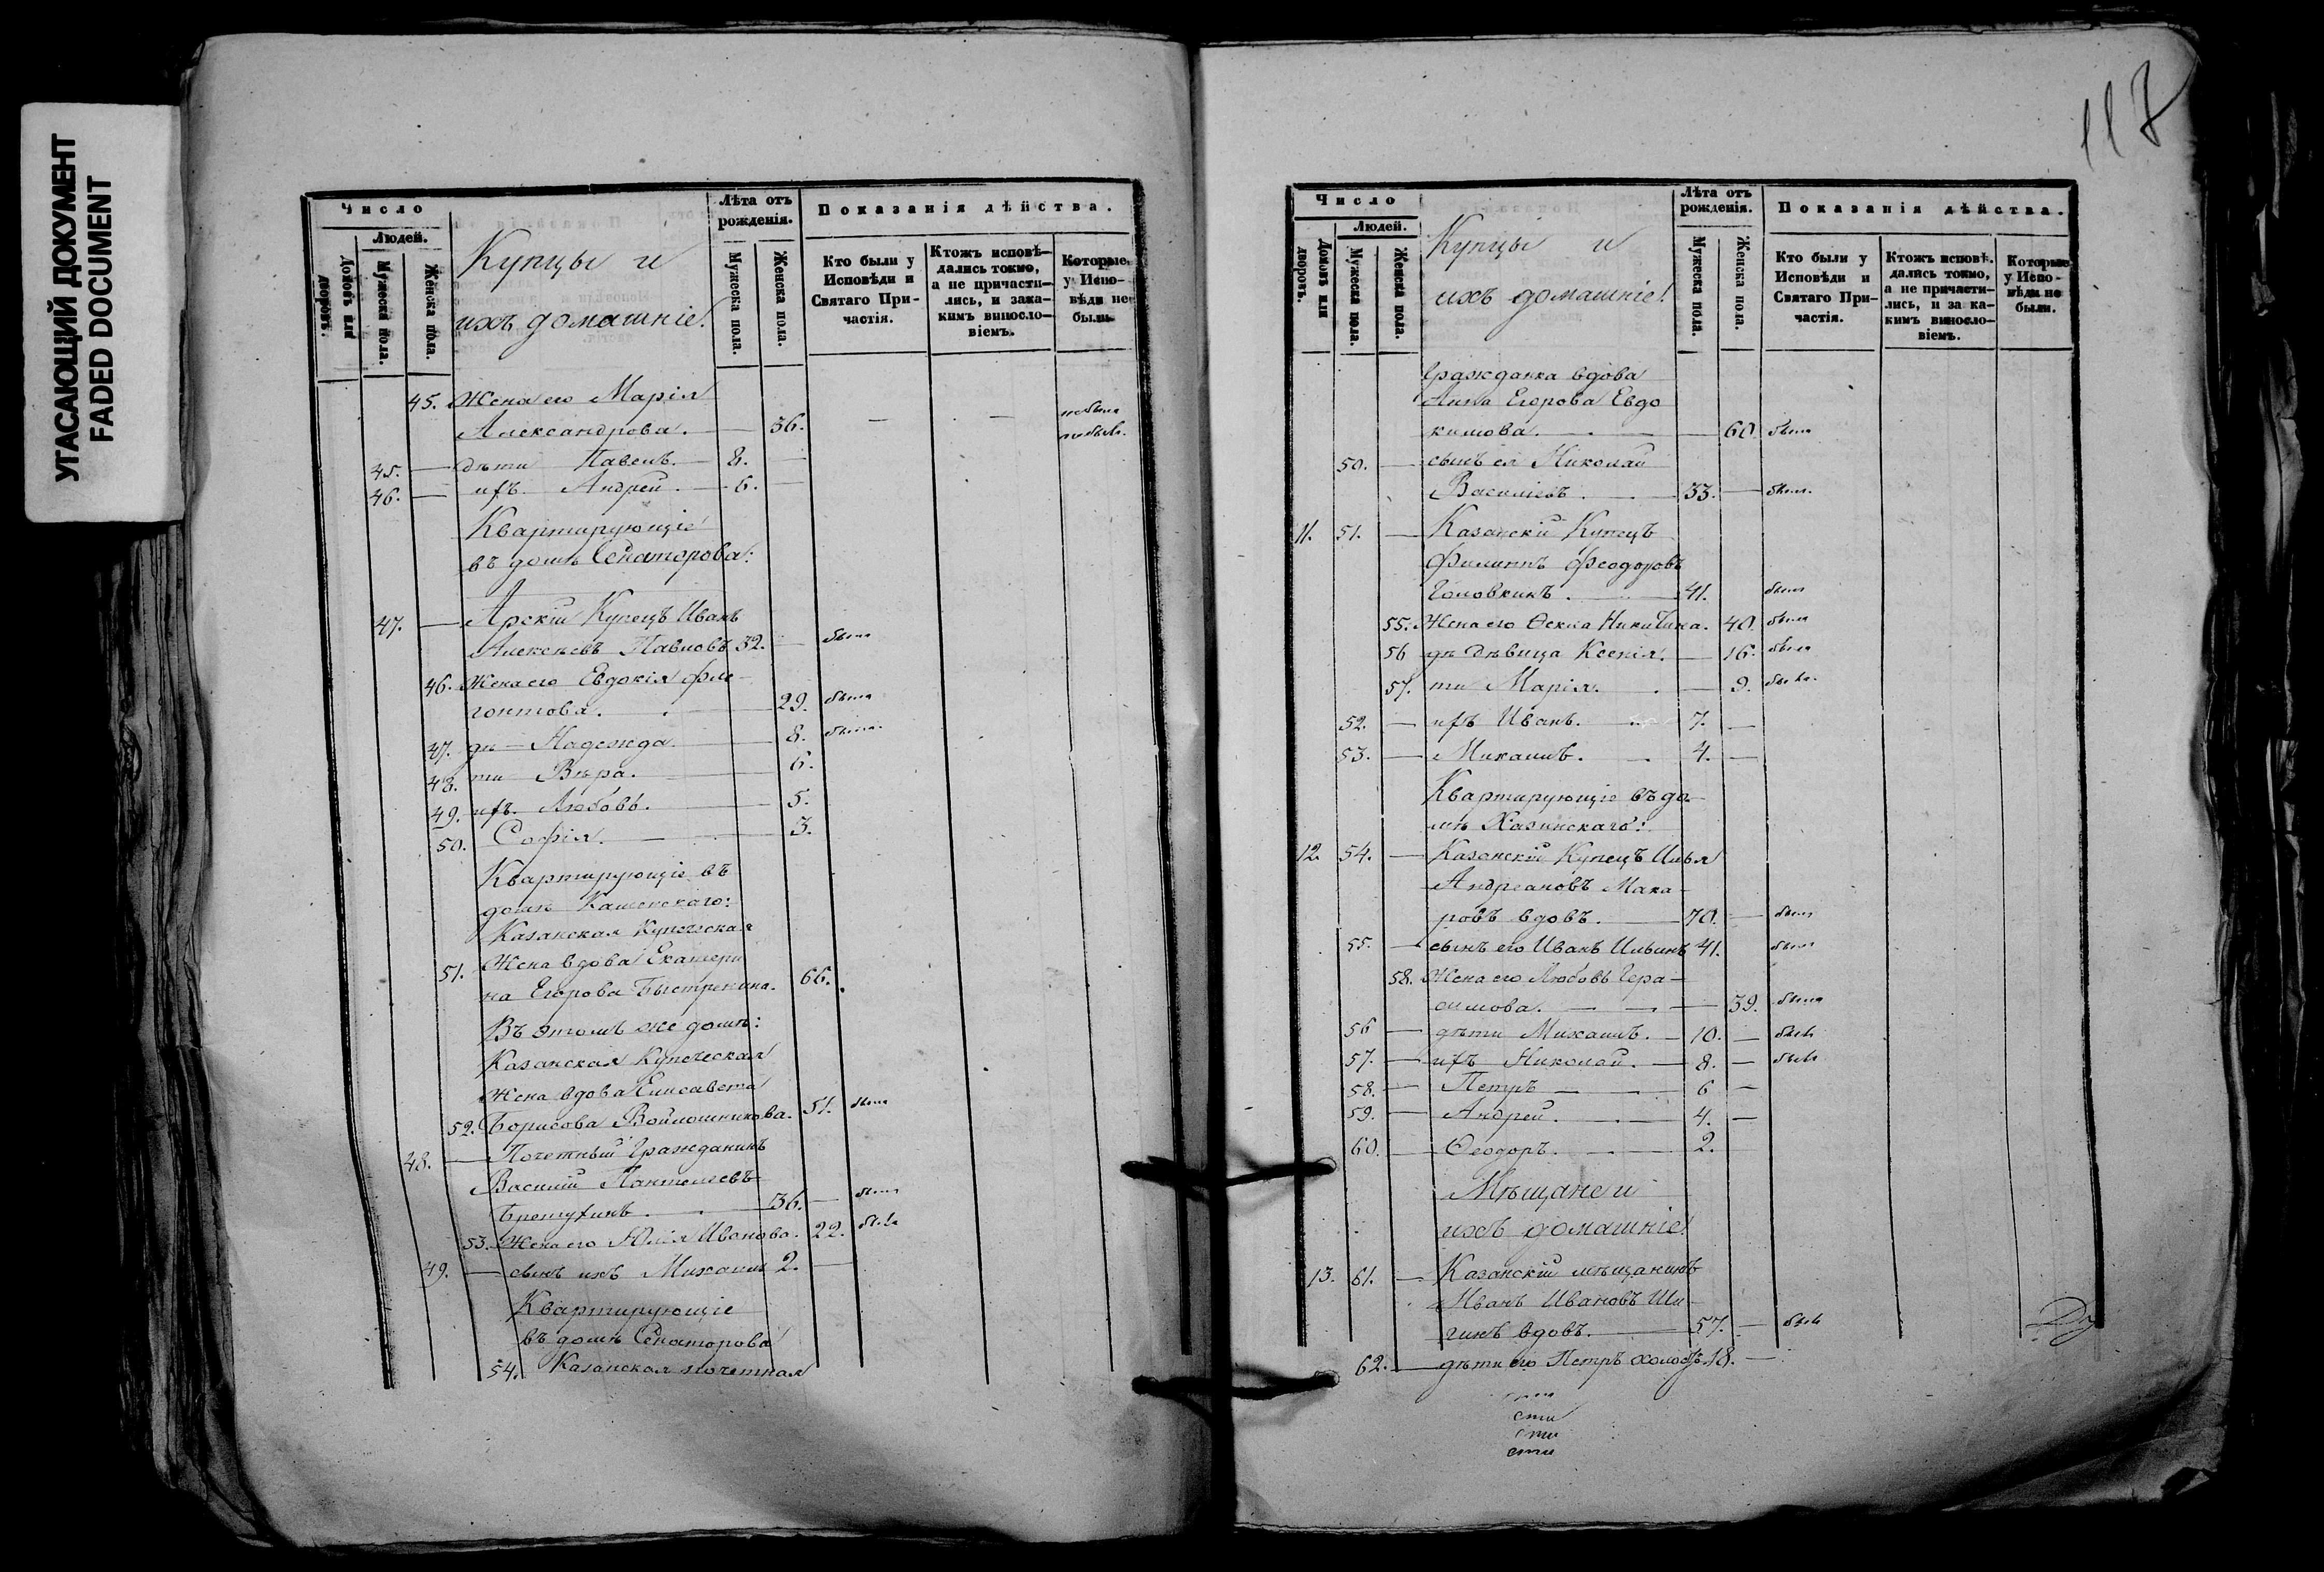 УГАСАЮЩИЙ ДОКУМЕНТ
FADED DOCUMENT
Число
Людей.
Домовъ или дворовъ.
Мужеска пола.
Женска пола.
Купцы и
ихъ домашніе.
Лѣта отъ рожденія.
Мужеска пола.
Женска пола.
Показанія дѣйства.
Кто были у Исповѣди и Святаго При-частія.
Ктожъ исповѣ-дались токмо, а не причасти-лись, и зака-кимъ виносло-віемъ.
Которые у Испо-вѣди не были.
45. Жена его Марія
Александрова. — 36. — — не была
не былъ.
45. — дѣти Павелъ. — 8. —
46. — ихъ Андрей. — 6. —
Квартирующіе
въ домѣ Сенаторова:
47. — Арскій Купецъ Иванъ
Алексѣевъ Павловъ 32. — былъ
46. Жена его Евдокія Фле-
гонтова. — 29. была
47. дѣ— Надежда. — 8. была.
48. ти Вѣра. — 6.
49. ихъ Любовь. — 5.
50. Софія. — 3.
Квартирующіе въ
домѣ Каменскаго:
Казанская Купеческая
51. Жена вдова Екатери
на Егорова Быстрекина. 66.
Въ этомъ же домѣ:
Казанская Купеческая
Жена вдова Елисавета
52. Борисова Войлошникова. 51. была
48. — Почетный Гражданинъ
Василій Пантелеевъ
36. — былъ
53. Жена его Юлія Иванова. 22. была
49. — сынъ ихъ Михаилъ 2. —
Квартирующіе
въ домѣ Сенаторова
54. Казанская почетная
117
Число
Людей.
Домовъ или дворовъ.
Мужеска пола.
Женска пола.
Купцы и
ихъ домашніе.
Лѣта отъ рожденія.
Мужеска пола.
Женска пола.
Показанія дѣйства.
Кто были у Исповѣди и Святаго При-частія.
Ктожъ исповѣ-дались токмо, а не причасти-лись, и за ка-кимъ виносло-віемъ.
Которые у Испо-вѣди не были.
Гражданка вдова
Анна Егорова Евдо
кимова. — 60. была
50. — сынъ ея Николай
Василіевъ. — 33. — былъ.
11. 51. — Казанскій Купецъ
Филиппъ Феодоровъ
Головкинъ. — 41. былъ
55. Жена его Ѳекла Никитина. 40. была
56 дѣ дѣвица Ксенія. — 16. была
57. ти Марія. — 9. была.
52. — ихъ Иванъ. — 7. —
53. — Михаилъ. — 4. —
Квартирующіе въ до-
мѣ Хазинскаго:
12. 54. — Казанскій Купецъ Илья
Андреановъ Мака-
ровъ вдовъ. — 70. — былъ
55. — сынъ его Иванъ Ильинъ 41. былъ
58. Жена его Любовь Гера-
симова. — — 39. была
56 — дѣти Михаилъ. — 10. — былъ
57. — ихъ Николай. — 8. — былъ
58. — Петръ — 6 —
59. — Андрей. — 4. —
60. — Ѳеодоръ. — 2.
Мѣщане и
ихъ домашніе.
13. 61. — Казанскій мѣщанинъ
Иванъ Ивановъ Ши-
гинъ вдовъ. — 57. — былъ
62. — дѣти его Петръ холостъ 18. —
сти
сти
сти